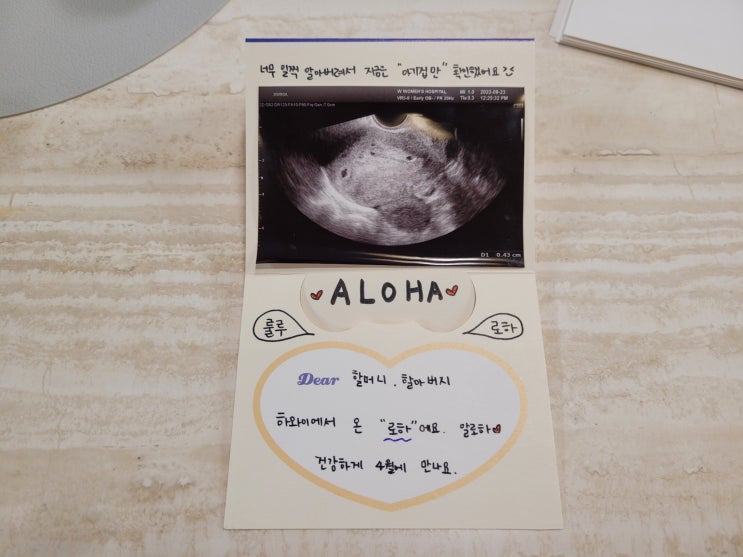 너무 일찍 알아버려서 지금은 "아기집만" 확인했어요
W WOMEN'S HOSPITAL
MI 1.0
2022-08-23
Early OB
TIs 0.3
12:25:32 PM
D1 0.43 cm
ALOHA
룰루
로하
Dear 할머니, 할아버지
하와이에서 온 "로하"에요. 알로하
건강하게 4월에 만나요.